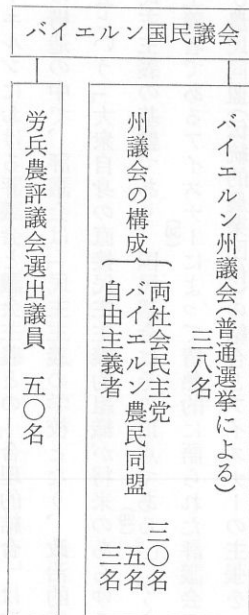 バイエルン国民議会
バイエルン州議会(普通選挙による)
三八名
州議会の構成
両社会民主党 三〇名
バイエルン農民同盟 五名
自由主義者 三名
労兵農評議会選出議員 五〇名